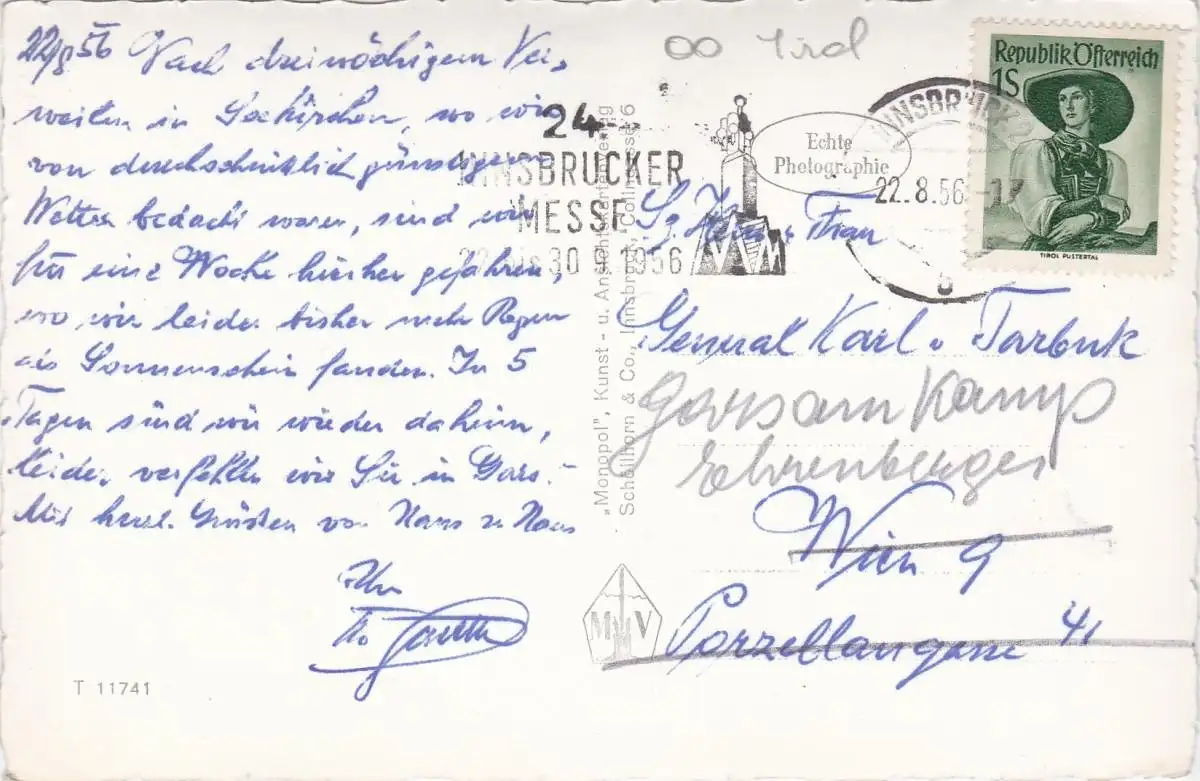 22/8 56 Nach dreiwöchigem Ver-
weilen in Seekirchen, wo wir
von durchschnittlich günstigem
Wetter bedacht waren, sind wir
für eine Woche hierher gefahren,
wo wir leider bisher mehr Regen
als Sonnenschein fanden. In 5
Tagen sind wir wieder daheim,
leider verfehlen wir Sie in Gars.-
Mit herzl. Grüßen von Haus zu Haus
Ihr
T 11741
"Monopol", Kunst- u. Ansichtskartenverlag
Schöllhorn & Co., Innsbruck, Collingasse 6
MV
Tirol
24.
INNSBRUCKER
MESSE
1956
Echte
Photographie
INNSBRUCK
22.8.56
Republik Österreich
1S
TIROL PUSTERTAL
Herrn u. Frau
General Karl v Tarbuk
Gars am Kamp
Ehrenberger
Wien 9
Porzellangasse 41